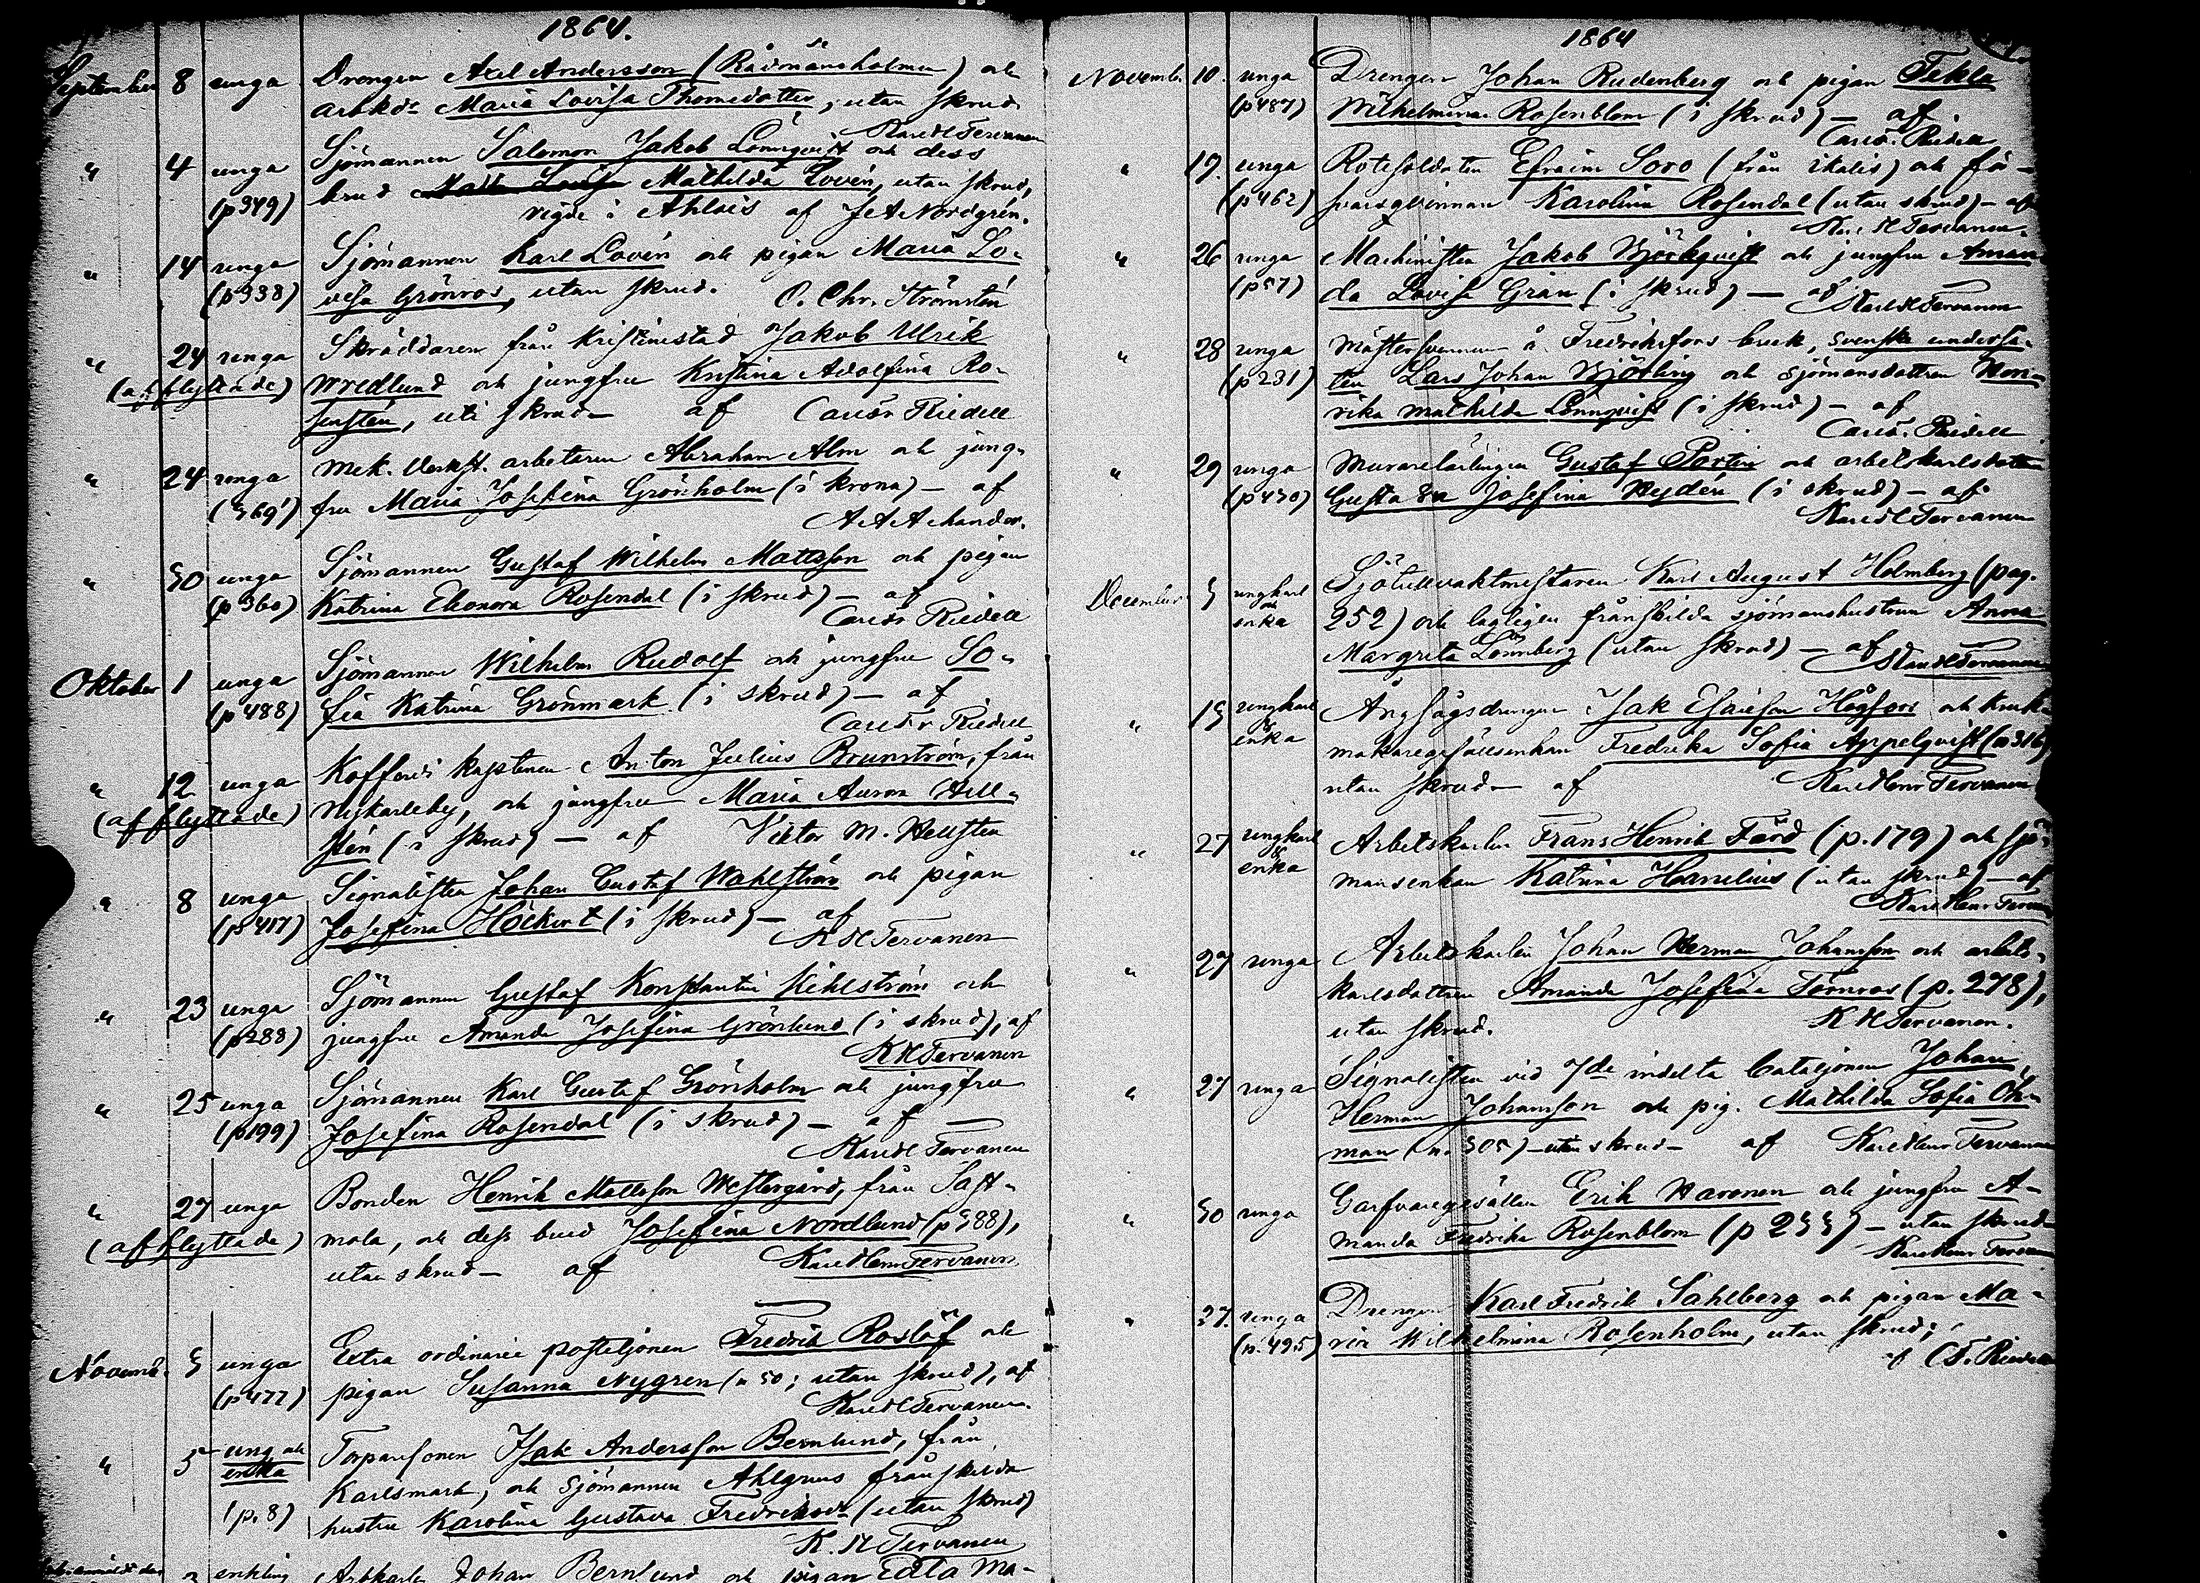 1864.
September 8 unga Drengen Axel Andersson (Rådmansholmen) och
arbkd: Maria Lovisa Thomedotter, utan skrud
Karl H Tervanen
" 4 unga Sjömannen Salomon Jakob Lönnqvist och dess
(p 349) brud Mathilda Lovén, utan skrud,
vigde i Ahlais af J A Nordgrén.
" 14 unga Sjömannen Karl Lovén och pigan Maria Lo-
(p 338) visa Grönros, utan skrud. O. Chr. Strömstén
" 24 unga Skräddaren från Kristinestad Jakob Ulrik
(afflyttade) Wredlund och jungfru Kristina Adolfina Ro-
senstén, uti skrud – af Carl Fr Riedell
" 24 unga Mek. Verkst. arbetaren Abraham Alm och jung-
(369) fru Maria Josefina Grönholm (i krona) – af
" 30 unga Sjömannen Gustaf Wilhelm Mattsson och pigan
(p 360) Katrina Eleonora Rosendal (i skrud) – af
Carl Fr Riedell
Oktober 1 unga Sjömannen Wilhelm Rudolf och jungfru So-
(p 488) fia Katrina Grönmark (i skrud) – af
Carl Fr Riedell
" 12 unga Kofferdi kaptenen Anton Julius Brunström, från
(afflyttade) Nykarleby, och jungfru Maria Aurora Hell-
stén (i skrud) – af Viktor M. Hellsten
" 8 unga Signalisten Johan Gustaf Wahlström och pigan
(p 417) Josefina Höckert (i skrud) – af
K H Tervanen
" 23 unga Sjömannen Gustaf Konstantin Kihlström och
(p 288) jungfru Amanda Josefina Grönlund (i skrud), af
K H Tervanen
" 25 unga Sjömannen Karl Gustaf Grönholm och jungfru
(p 199) Josefina Rosendal (i skrud) – af
Karl H Tervanen
" 27 unga Bonden Henrik Mattsson Westergård, från Sast-
(afflyttade) mola, och dess brud Josefina Nordlund (p 388),
utan skrud – af Karl Henr Tervanen
Novemb. 3 unga Extra ordinarie postiljonen Fredrik Roslöf och
(p 477) pigan Susanna Nygren (p 50; utan skrud), af
Karl H Tervanen.
" 5 ung och Torparesonen Isak Andersson Bernlund, från
enka Karlsmark, och Sjömannen Ahlgrens frånskilda
(p. 8) hustru Karolina Gustava Fredriksdr (utan skrud)
K. H Tervanen
3 enkling Arbkarlen Johan Bernlund och pigan Edla Ma-
1864
Novemb. 10. unga Drengen Johan Rudenberg och pigan Tekla
(p 487) Wilhelmina Rosenblom (i skrud) – af
Carl Fr. Riedell
" 19. unga Rotesoldaten Efraim Soro (från Italis) och för-
(p 462) svarsqvinnan Karolina Rosendal (utan skrud) – af
Karl H Tervanen.
" 26 unga Machinisten Jakob Björkqvist och jungfru Aman-
(p 57) da Lovisa Grän (i skrud) – af Karl H Tervanen
" 28 unga Mästersvennen å Fredriksfors bruk, svenska underså-
(p 231) ten Lars Johan Björling och Sjömansdottren Hen-
rika Mathilda Lönnqvist (i skrud) – af
Carl Fr. Riedell
" 29 unga Murarelärlingen Gustaf Portin och arbetskarlsdottren
(p 430) Gustava Josefina Heydén (i skrud) – af
Karl H Tervanen
December 3 ungkarl Sjötullvaktmästaren Karl August Holmberg (pag.
och enka 252) och lagligen frånskilda sjömanshustrun Anna
Margreta Lönnberg (utan skrud) – af Karl H Tervanen
" 13 ungkarl Ångsågsdrengen Isak Esaiesson Högfors och kruk-
& enka makaregesällsenkan Fredrika Sofia Appelqvist (p 316)
utan skrud – af Karl Henr Tervanen
" 27 ungkarl Arbetskarlen Frans Henrik Färd (p. 179) och sjö-
& enka mansenkan Katrina Hanelius (utan skrud) – af
Karl Henr Tervanen
" 27 unga Arbetskarlen Johan Herman Johansson och arbets-
karlsdottren Amanda Josefina Törnroos (p. 278),
utan skrud. K H Tervanen.
" 27 unga Signalisten vid 7de indelta bataljonen Johan
Herman Johansson och pig. Mathilda Sofia Öh-
man (p. 305) – utan skrud – af Karl Henr Tervanen
" 30 unga Garfvaregesällen Erik Haronen och jungfru A-
manda Fredrika Rosenblom (p 233) – utan skrud
Karl Henr Tervanen
" 27. unga Drengen Karl Fredrik Sahlberg och pigan Ma-
(p. 495) ria Wilhelmina Rosenholm, utan skrud;
af C F. Riedell